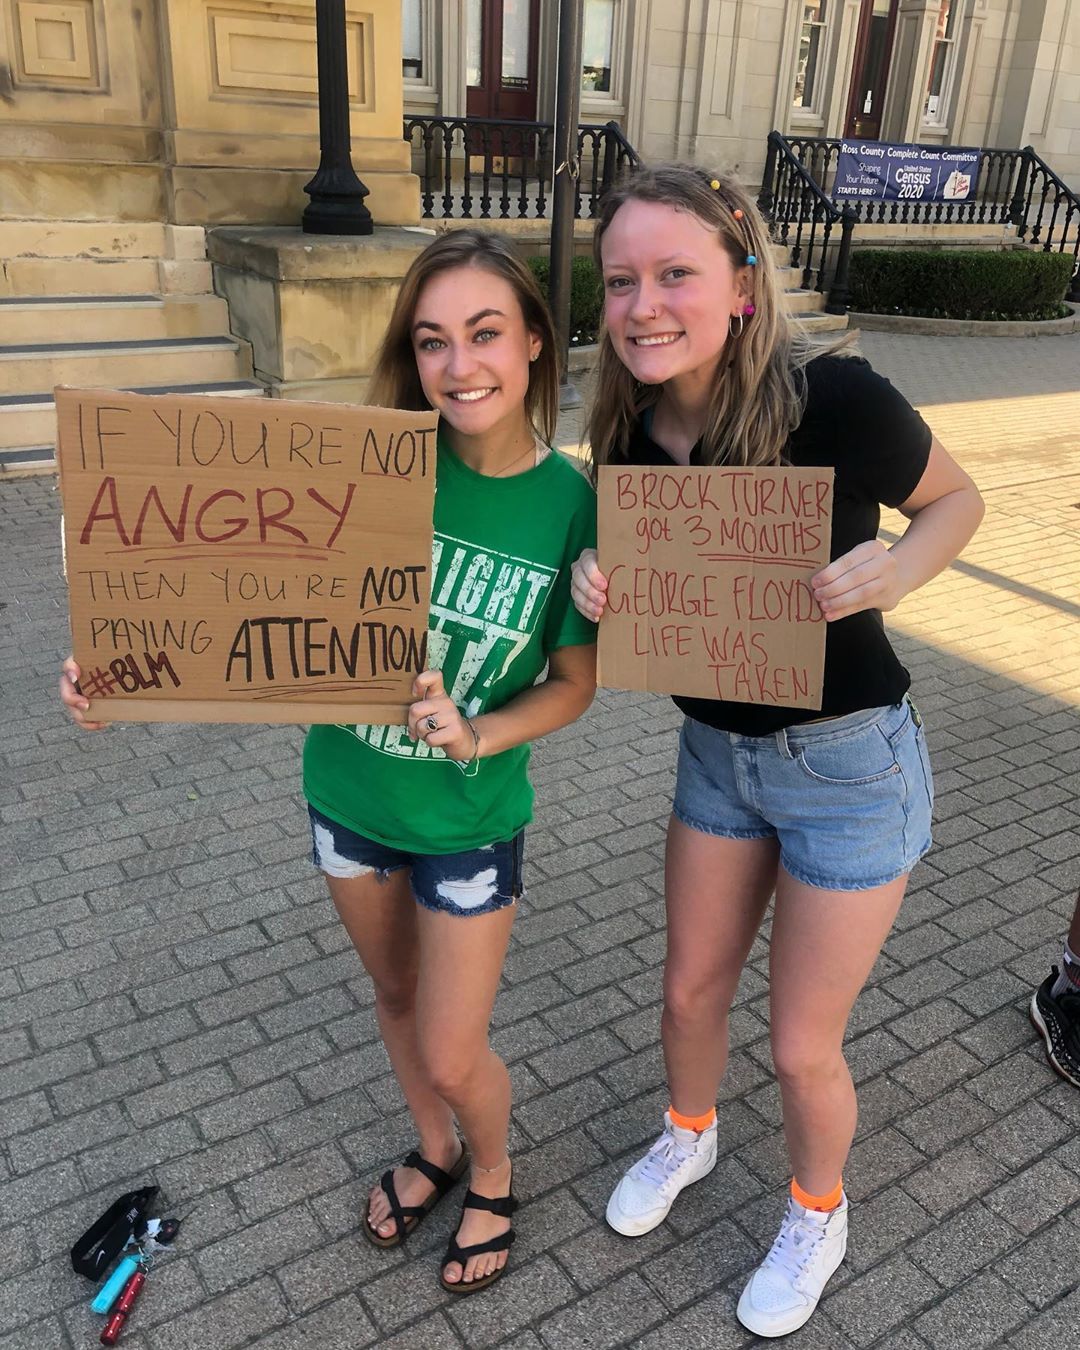 Ross County Complete Count Committee
Shaping
Your Future
STARTS HERE>
United States
Census
2020
IF YOU'RE NOT
ANGRY
THEN YOU'RE NOT
PAYING ATTENTION
#BLM
BROCK TURNER
got 3 MONTHS
GEORGE FLOYDS
LIFE WAS
TAKEN.